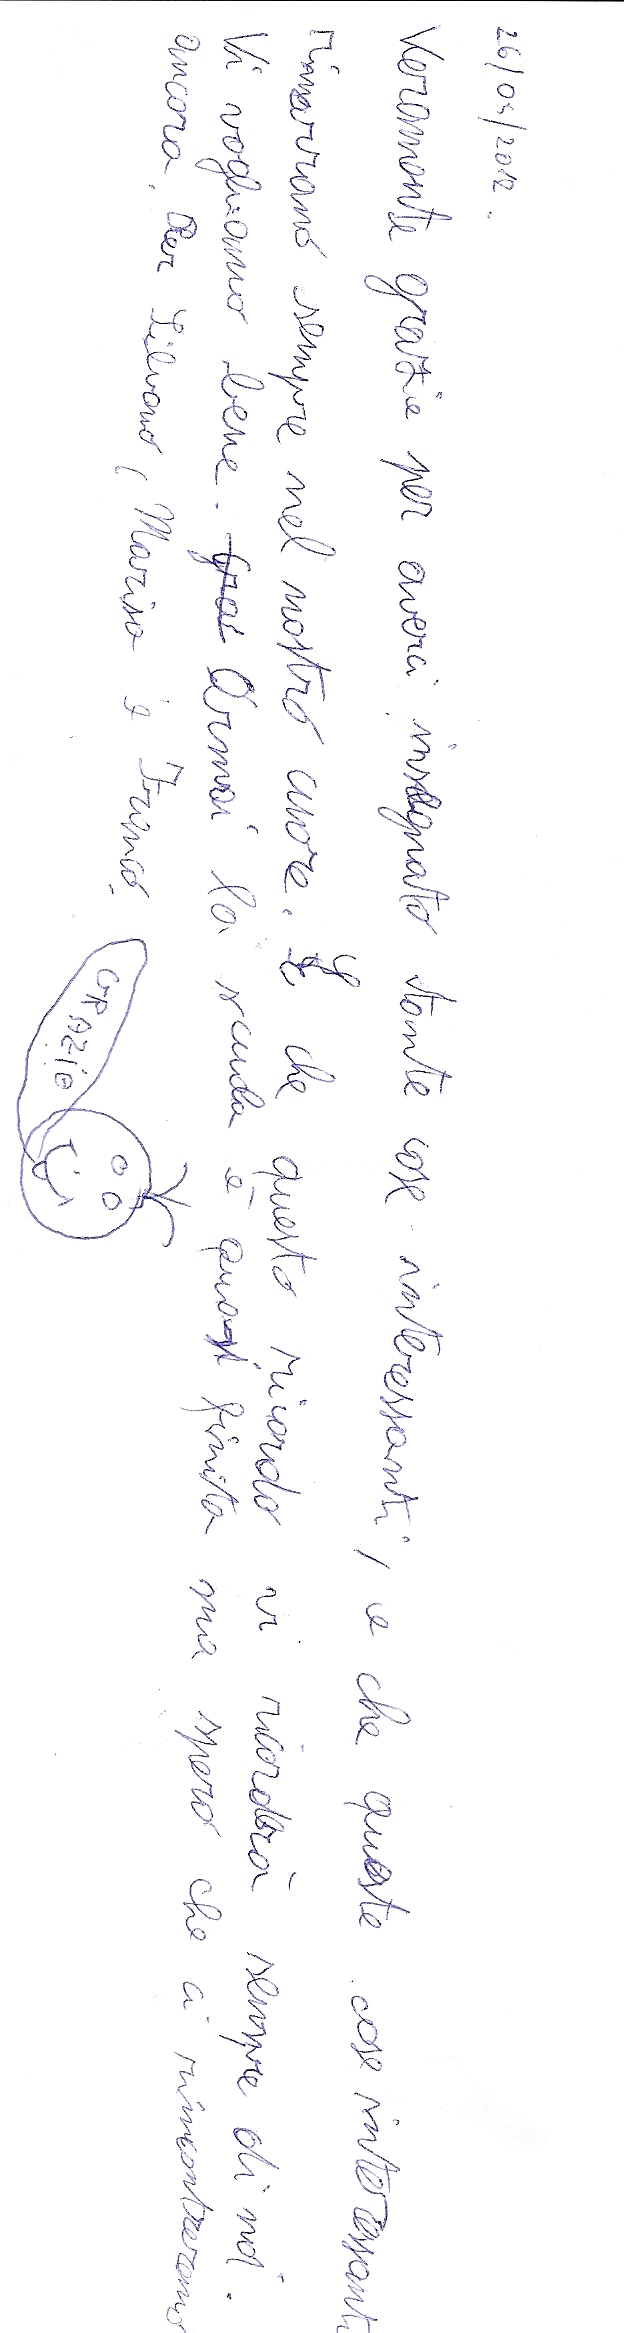 26/04/2012.
Veramente grazie per averci insegnato tante cose interessanti, e che queste cose interessanti
rimarranno sempre nel nostro cuore. E che questo ricordo vi ricorderà sempre di noi.
Vi vogliamo bene. Ormai la scuola è quasi finita ma spero che ci rincontreremo
ancora. Per Silvano, Marisa e Franco.
GRAZIE